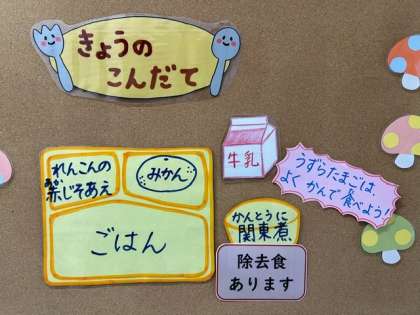 きょうの
こんだて
れんこんの
赤じそあえ
あか
みかん
牛乳
うずらたまごは
よくかんで食べよう!
かんとうに
関東煮
ごはん
除去食
あります